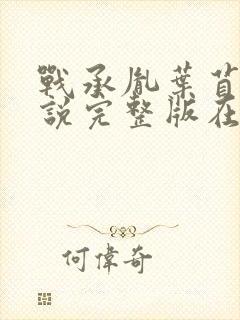 戰承胤葉
說完整版在
何偉奇